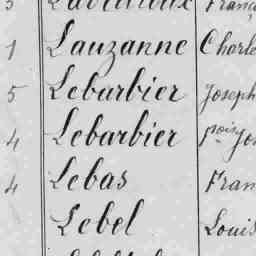 1 Lauzanne Charle
5 Lebarbier Joseph
4 Lebarbier
4 Lebas Fran
Lebel Louis